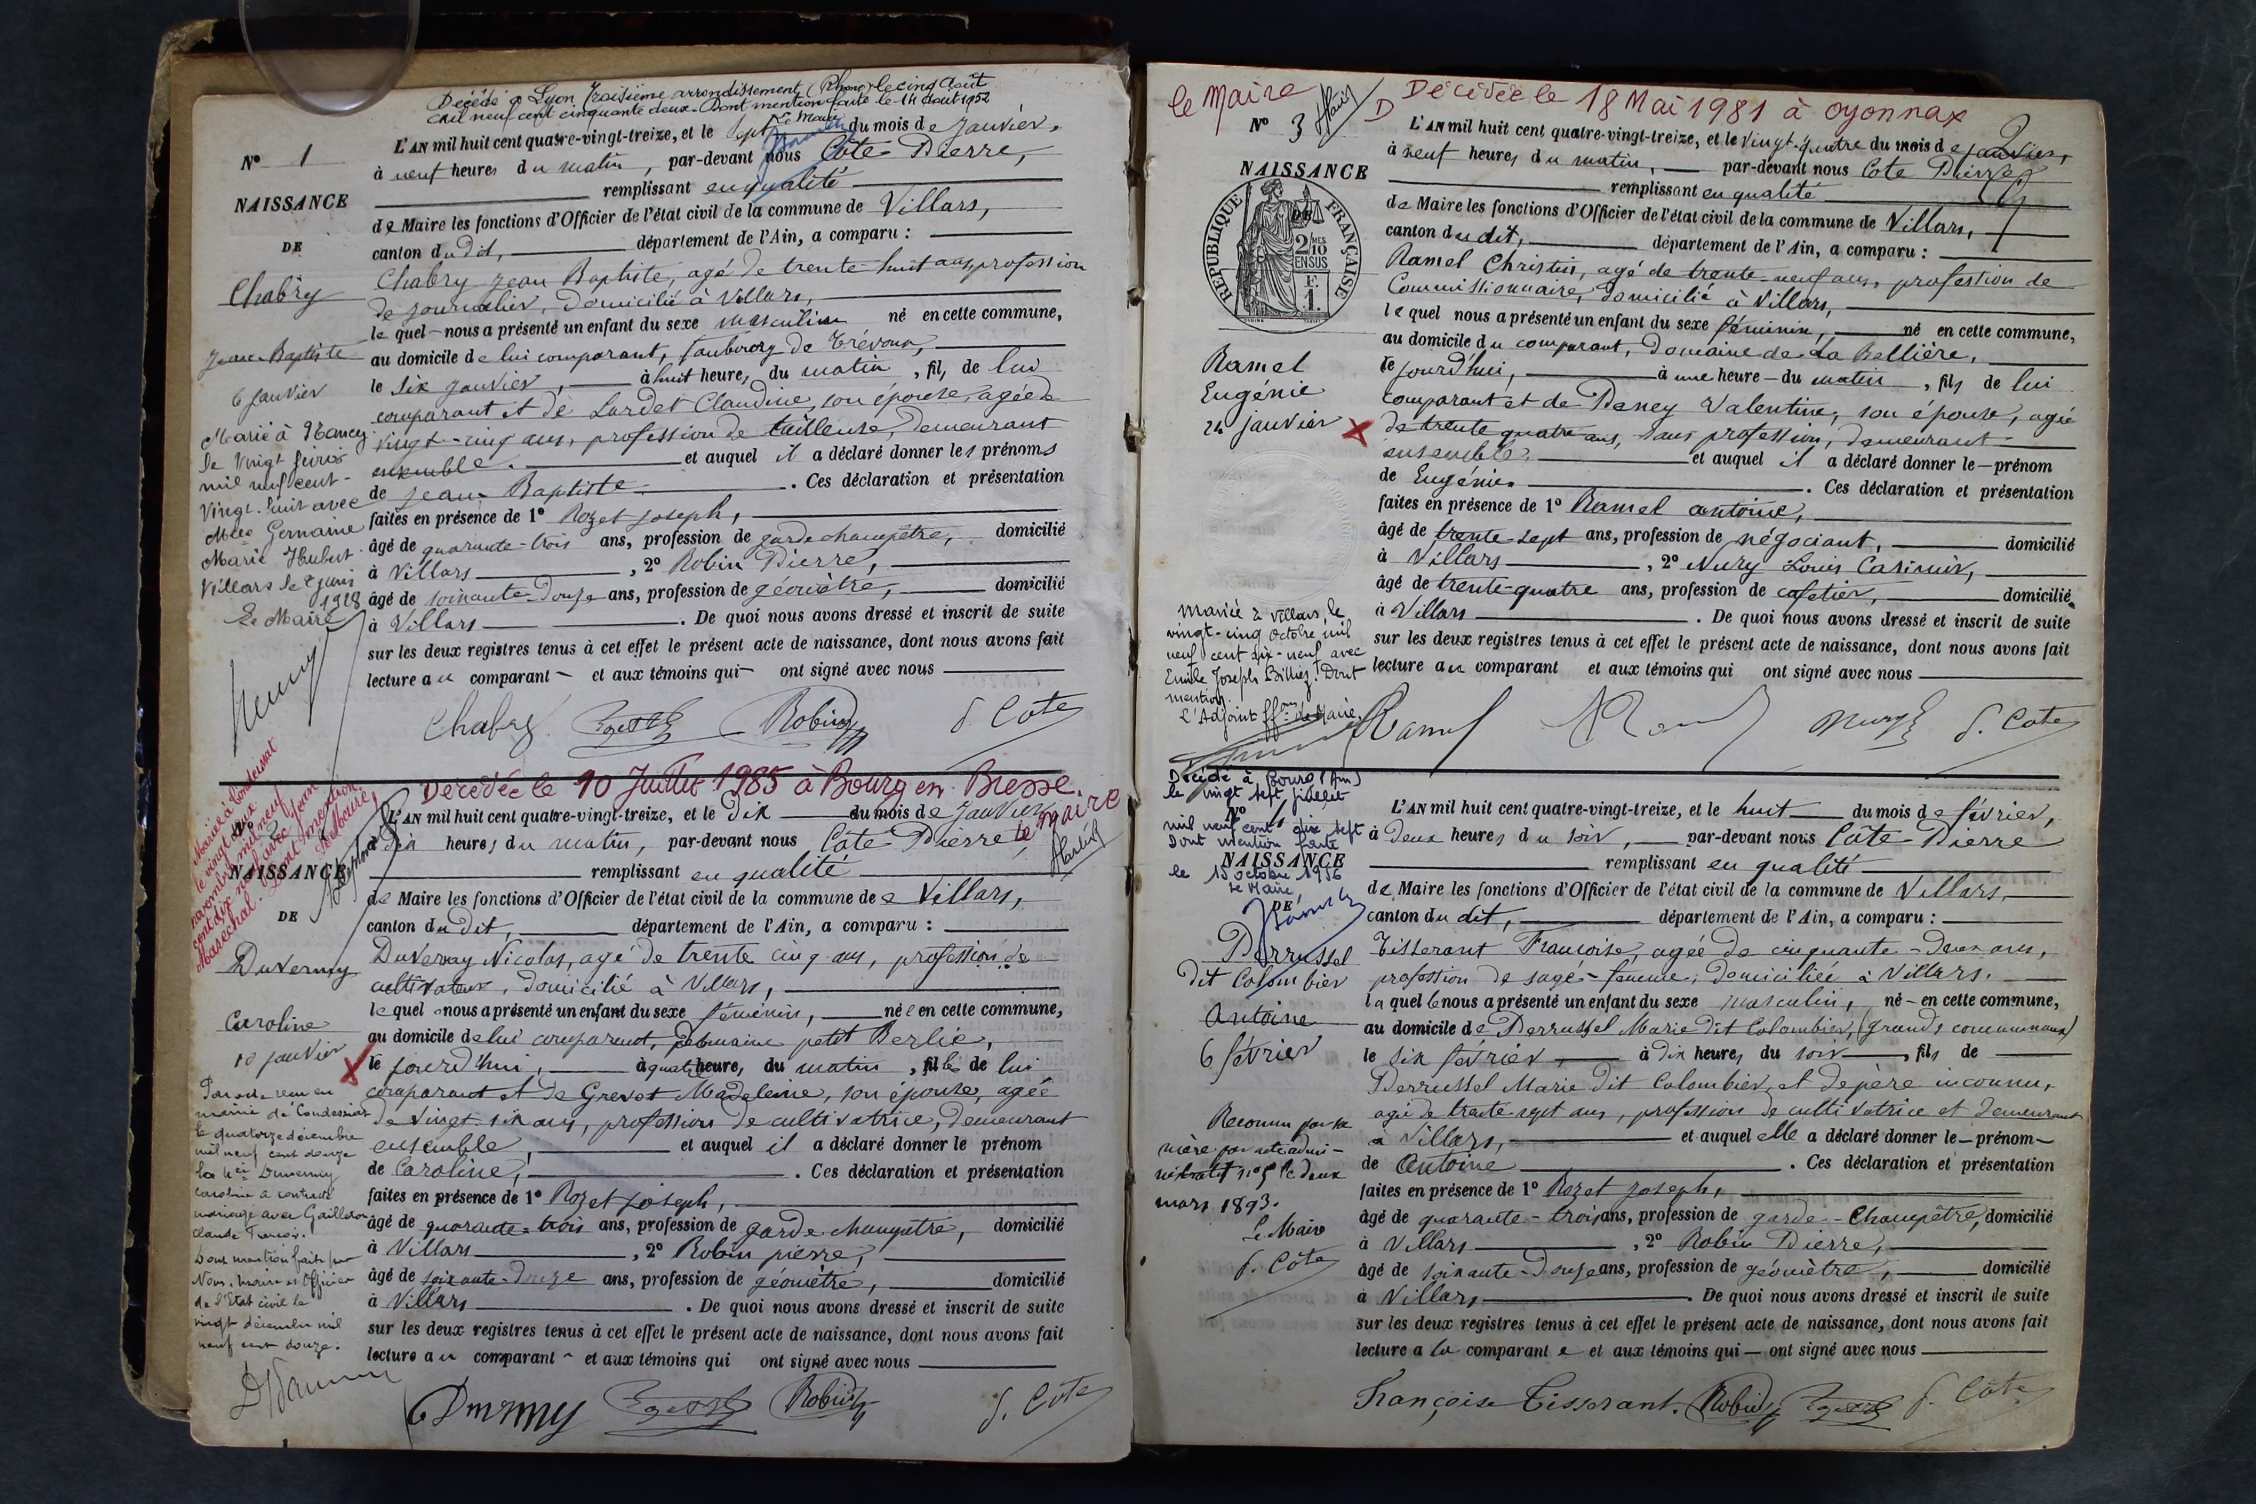 Décédé à Lyon troisième arrondissement (Rhône) le cinq Août
mil neuf cent cinquante deux. Dont mention faite le 14 Août 1952
Le Maire
N° 1
NAISSANCE
DE
Chabry
Jean Baptiste
6 janvier
Marié à Nancy
le vingt
mil neuf cent
vingt-huit avec
Melle Germaine
Marie Hubert
Villars le 8 juin
1928
Le Maire
L'AN mil huit cent quatre-vingt-treize, et le sept du mois de janvier,
à neuf heures du matin, par-devant nous Côte Pierre,
remplissant en qualité
de Maire les fonctions d'Officier de l'état civil de la commune de Villars,
canton dudit, département de l'Ain, a comparu :
Chabry Jean Baptiste, agé de trente-huit ans, profession
de journalier, domicilié à Villars,
lequel nous a présenté un enfant du sexe masculin né en cette commune,
au domicile de lui comparant, faubourg de Trévoux,
le six janvier, à huit heures du matin, fils de lui
comparant et de Lardet Claudine, son épouse, agée de
vingt-cinq ans, profession de tailleuse, demeurant
ensemble. et auquel il a déclaré donner les prénoms
de Jean Baptiste. Ces déclaration et présentation
faites en présence de 1° Rozet Joseph,
âgé de quarante-trois ans, profession de garde champêtre, domicilié
à Villars, 2° Robin Pierre,
âgé de soixante-douze ans, profession de géomètre, domicilié
à Villars. De quoi nous avons dressé et inscrit de suite
sur les deux registres tenus à cet effet le présent acte de naissance, dont nous avons fait
lecture au comparant et aux témoins qui ont signé avec nous
Chabry Rozet Robin P. Côte
Décédée le 10 Juillet 1985 à Bourg en Bresse.
le maire
Marié à Condeissiat
le vingt deux
novembre mil neuf
cent dix neuf avec Jean
Maréchal. Dont mention.
Le Maire,
NAISSANCE
DE
Duvernay
Caroline
10 janvier
Par acte reçu en
mairie de Condeissiat
le quatorze décembre
mil neuf cent douze
la Née Duvernay
Caroline a contracté
mariage avec
Claude François.
Dont mention faite par
Nous, Maire et Officier
de l'Etat civil le
vingt décembre mil
neuf cent douze.
L'AN mil huit cent quatre-vingt-treize, et le dix du mois de janvier
à dix heures du matin, par-devant nous Côte Pierre
remplissant en qualité
de Maire les fonctions d'Officier de l'état civil de la commune de Villars,
canton dudit, département de l'Ain, a comparu :
Duvernay Nicolas, agé de trente cinq ans, profession de
cultivateur, domicilié à Villars,
lequel nous a présenté un enfant du sexe féminin, née en cette commune,
au domicile de lui comparant, domaine petit Berlie,
le jourd'hui, à quatre heures, du matin, fille de lui
comparant et de Grevot Madeleine, son épouse, agée
de vingt six ans, profession de cultivatrice, demeurant
ensemble, et auquel il a déclaré donner le prénom
de Caroline, Ces déclaration et présentation
faites en présence de 1° Rozet Joseph,
âgé de quarante-trois ans, profession de garde champêtre, domicilié
à Villars, 2° Robin pierre,
âgé de soixante-douze ans, profession de géomètre, domicilié
à Villars. De quoi nous avons dressé et inscrit de suite
sur les deux registres tenus à cet effet le présent acte de naissance, dont nous avons fait
lecture au comparant et aux témoins qui ont signé avec nous
Duvernay Rozet Robin P. Côte
le Maire
D Décédée le 18 Mai 1981 à oyonnax
2
N° 3
NAISSANCE
DE
REPUBLIQUE FRANÇAISE
2/10 MES
EN SUS
F.
1.
Ramel
Eugénie
24 janvier
Mariée à Villars, le
vingt-cinq octobre mil
neuf cent dix-neuf avec
Emile Joseph Billiez. Dont
mention.
L'Adjoint ffons de Maire,
L'AN mil huit cent quatre-vingt-treize, et le vingt-quatre du mois de janvier,
à neuf heures du matin, par-devant nous Côte Pierre
remplissant en qualité
de Maire les fonctions d'Officier de l'état civil de la commune de Villars,
canton du dit, département de l'Ain, a comparu :
Ramel Christin, agé de trente-neuf ans, profession de
Commissionnaire, domicilié à Villars,
lequel nous a présenté un enfant du sexe féminin, né en cette commune,
au domicile du comparant, domaine de La Bellière,
le jourd'hui, à une heure du matin, fils de lui
comparant et de Peney Valentine, son épouse, agée
de trente quatre ans, sans profession, demeurant
ensemble. et auquel il a déclaré donner le prénom
de Eugénie. Ces déclaration et présentation
faites en présence de 1° Ramel antoine,
âgé de trente sept ans, profession de négociant, domicilié
à Villars, 2° Nury Louis Casimir,
âgé de trente-quatre ans, profession de cafetier, domicilié
à Villars. De quoi nous avons dressé et inscrit de suite
sur les deux registres tenus à cet effet le présent acte de naissance, dont nous avons fait
lecture au comparant et aux témoins qui ont signé avec nous
Ramel Nury P. Côte
Décédé à Bourg (Ain)
le vingt sept juillet
N°
mil neuf cent dix sept
Dont mention faite
NAISSANCE
le 15 octobre 1956
Le Maire
DE
Perrussel
dit Colombier
Antoine
6 février
Reconnu par sa
mère par acte admi-
nistratif n° 5 le deux
mars 1893.
Le Maire
P. Côte
L'AN mil huit cent quatre-vingt-treize, et le huit du mois de février,
à deux heures du soir, par-devant nous Côte Pierre
remplissant en qualité
de Maire les fonctions d'Officier de l'état civil de la commune de Villars,
canton du dit, département de l'Ain, a comparu :
Tisserant Françoise, agée de cinquante-deux ans,
profession de sage-femme, domiciliée à Villars.
laquelle nous a présenté un enfant du sexe masculin, né en cette commune,
au domicile de Perrussel Marie dit Colombier, (grands communaux)
le six février, à dix heures du soir, fils de
Perrussel Marie dit Colombier, et de père inconnu,
agée de trente sept ans, profession de cultivatrice et demeurant
à Villars, et auquel elle a déclaré donner le prénom
de Antoine. Ces déclaration et présentation
faites en présence de 1° Rozet Joseph,
âgé de quarante-trois ans, profession de garde-Champêtre, domicilié
à Villars, 2° Robin Pierre,
âgé de soixante-douze ans, profession de géomètre, domicilié
à Villars. De quoi nous avons dressé et inscrit de suite
sur les deux registres tenus à cet effet le présent acte de naissance, dont nous avons fait
lecture a la comparante et aux témoins qui ont signé avec nous
Françoise Tisserant. Robin Rozet P. Côte